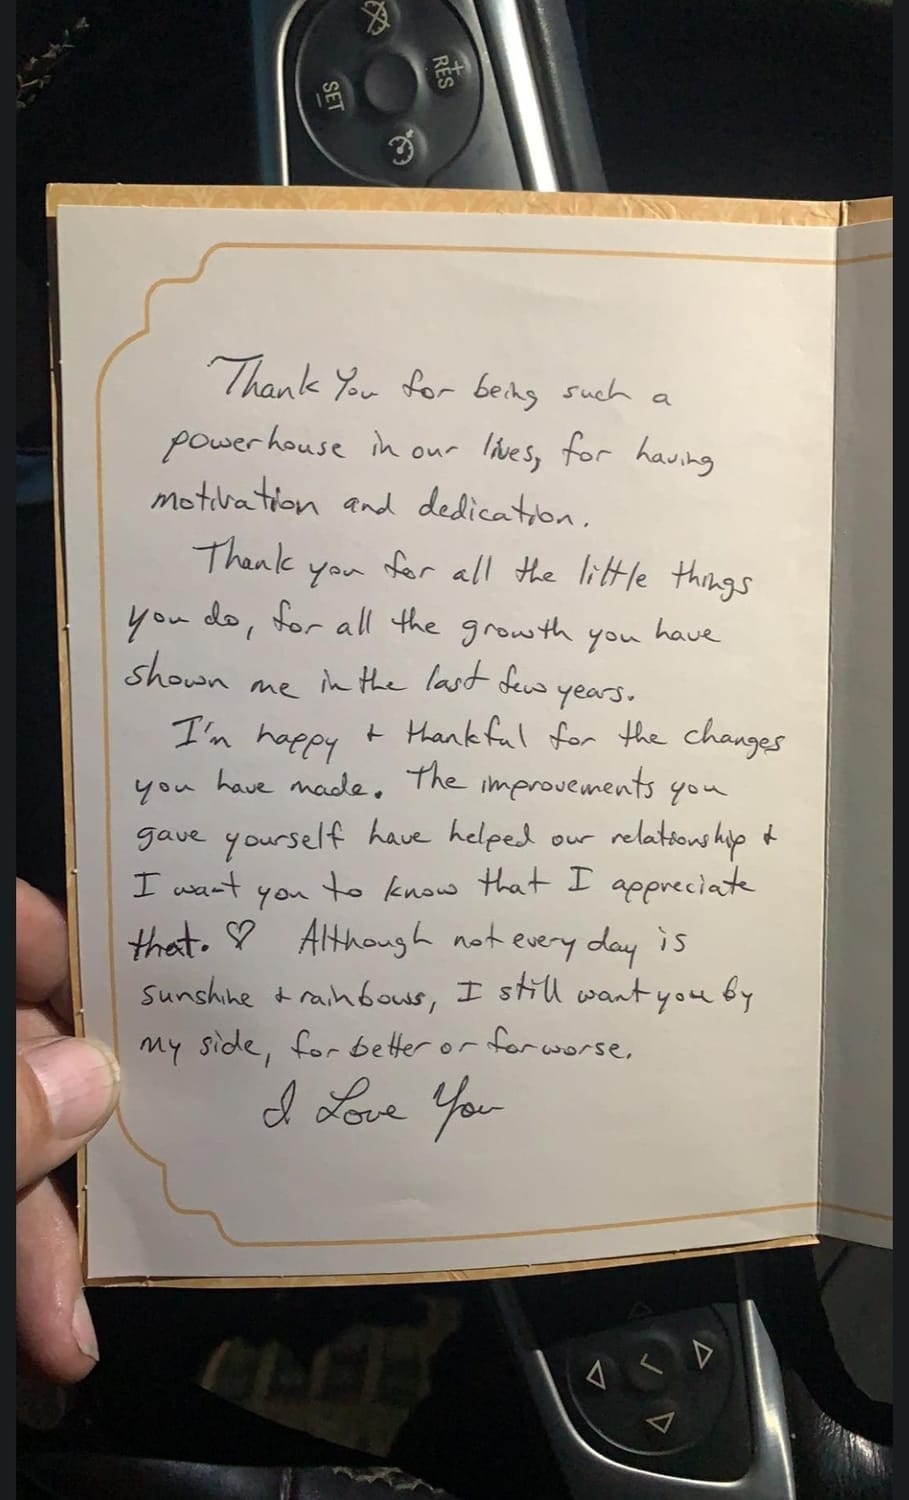 RES
+
SET
-
Thank You for being such a
powerhouse in our lives, for having
motivation and dedication.
Thank you for all the little things
you do, for all the growth you have
shown me in the last few years.
I'm happy + thankful for the changes
you have made. The improvements you
gave yourself have helped our relationship +
I want you to know that I appreciate
that. ♡ Although not every day is
sunshine + rainbows, I still want you by
my side, for better or for worse.
I Love You